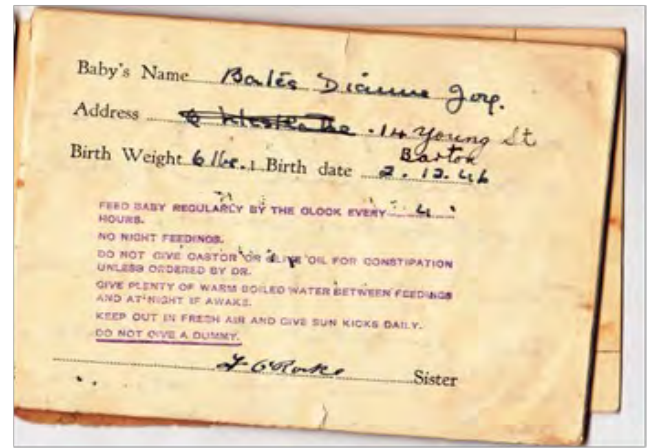 Baby's Name Bates Dianne Joy.
Address 14 Young St
Barton
Birth Weight 6 lbs. 1 Birth date 2.12.46
FEED BABY REGULARLY BY THE CLOCK EVERY 4
HOURS.
NO NIGHT FEEDINGS.
DO NOT GIVE CASTOR OR OLIVE OIL FOR CONSTIPATION
UNLESS ORDERED BY DR.
GIVE PLENTY OF WARM BOILED WATER BETWEEN FEEDINGS
AND AT NIGHT IF AWAKE.
KEEP OUT IN FRESH AIR AND GIVE SUN KICKS DAILY.
DO NOT GIVE A DUMMY.
Sister